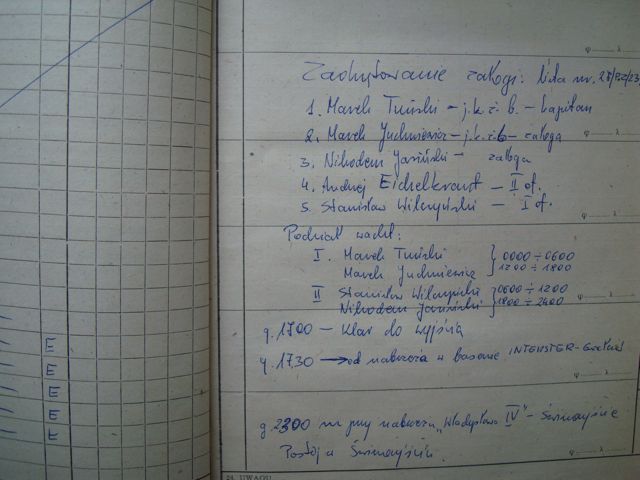 φ ........ λ ........
Zaokrętowanie załogi: lista nr.
1. Marek Tuński – j.k.ż.b. – kapitan
2. Marek Juchniewicz – j.k.ż.b – załoga
3. Nikodem Jasiński – załoga
4. Andrzej Eichelkraut – II of.
5. Stanisław Wilczyński – I of.
φ ........ λ ........
Podział wacht:
I. Marek Tuński } 0000 ÷ 0600
Marek Juchniewicz } 1200 ÷ 1800
II Stanisław Wilczyński } 0600 ÷ 1200
Nikodem Jasiński } 1800 ÷ 2400
φ ........ λ ........
g. 1700 – Klar do wyjścia
g. 1730 → od nabrzeża w basenie INTERSTER-
φ ........ λ ........
g 2300 przy nabrzeżu „Władysława IV" – Świnoujście
Postój w Świnoujściu.
φ ........ λ ........
24. UWAGI
E
E
E
E
E